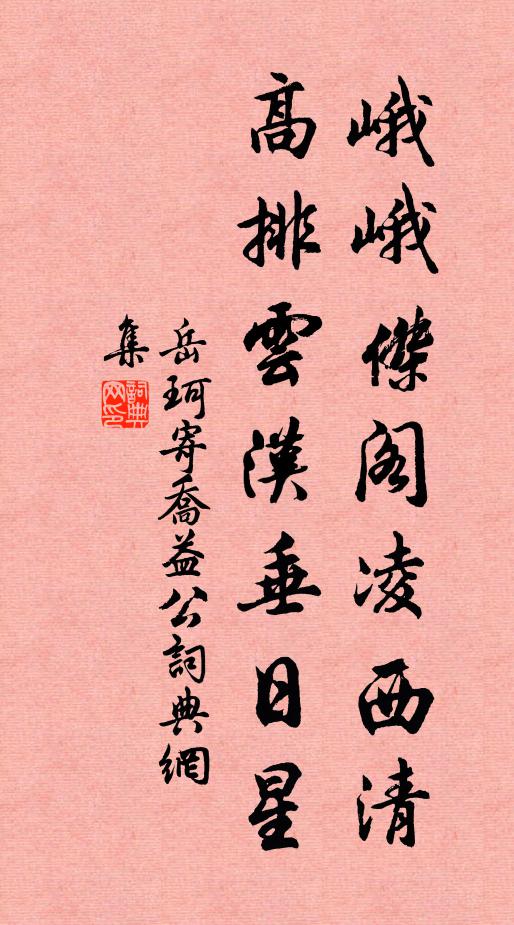 峨峨傑阁凌西清
高排雲漢垂日星
岳珂寄喬益公詞典網
集
詞典
网印